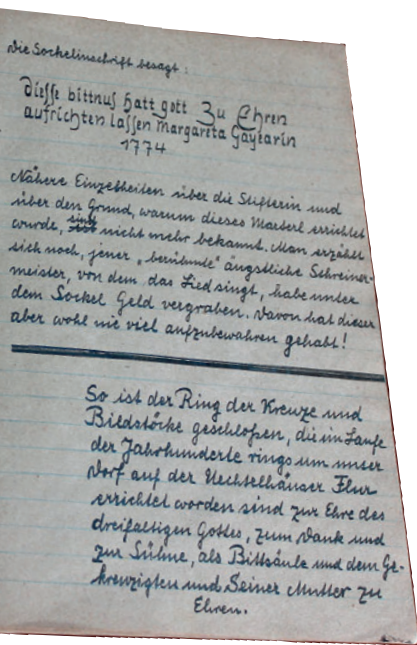 Die Sockelinschrift besagt:
diesse bittnus hatt gott Zu Ehren
aufrichten lassen Margareta Gayearin
1774
Nähere Einzelheiten über die Stifterin und
über den Grund, warum dieses Marterl errichtet
wurde, sind nicht mehr bekannt. Man erzählt
sich noch, jener „berühmte" ängstliche Schreiner-
meister, von dem das Lied singt, habe unter
dem Sockel Geld vergraben. Davon hat dieser
aber wohl nie viel aufzubewahren gehabt!
So ist der Ring der Kreuze und
Bildstöcke geschloßen, die im Laufe
der Jahrhunderte rings um unser
Dorf auf der Uechtelhäuser Flur
errichtet worden sind zur Ehre des
dreifaltigen Gottes, zum Dank und
zur Sühne, als Bittsäule und dem Ge-
kreuzigten und Seiner Mutter zu
Ehren.